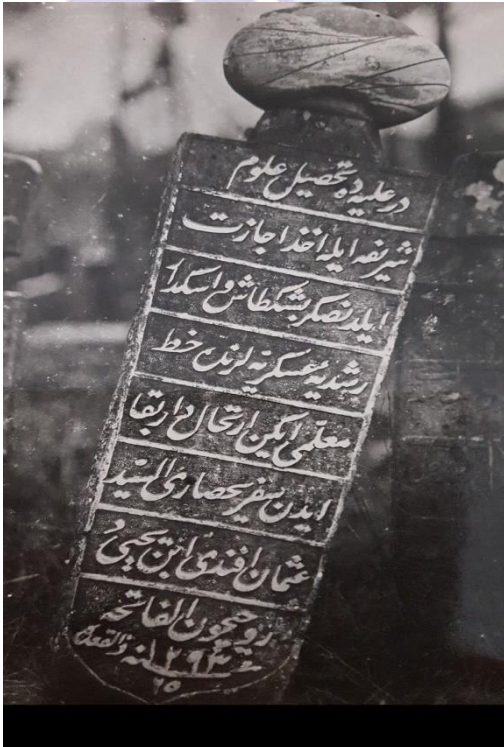 در علیه ده تحصیل علوم
شریفه ایله اخذ اجازت
ایلدنصکره بشکطاش و اسکدار
رشدیه عسکریه لرنده خط
معلمی ایکن ارتحال دار بقا
ایدن سفریحصاری السید
عثمان افندی ابن یحیی
روحیچون الفاتحه
سنه ۱۲۹۴ ذی القعده
۲۵